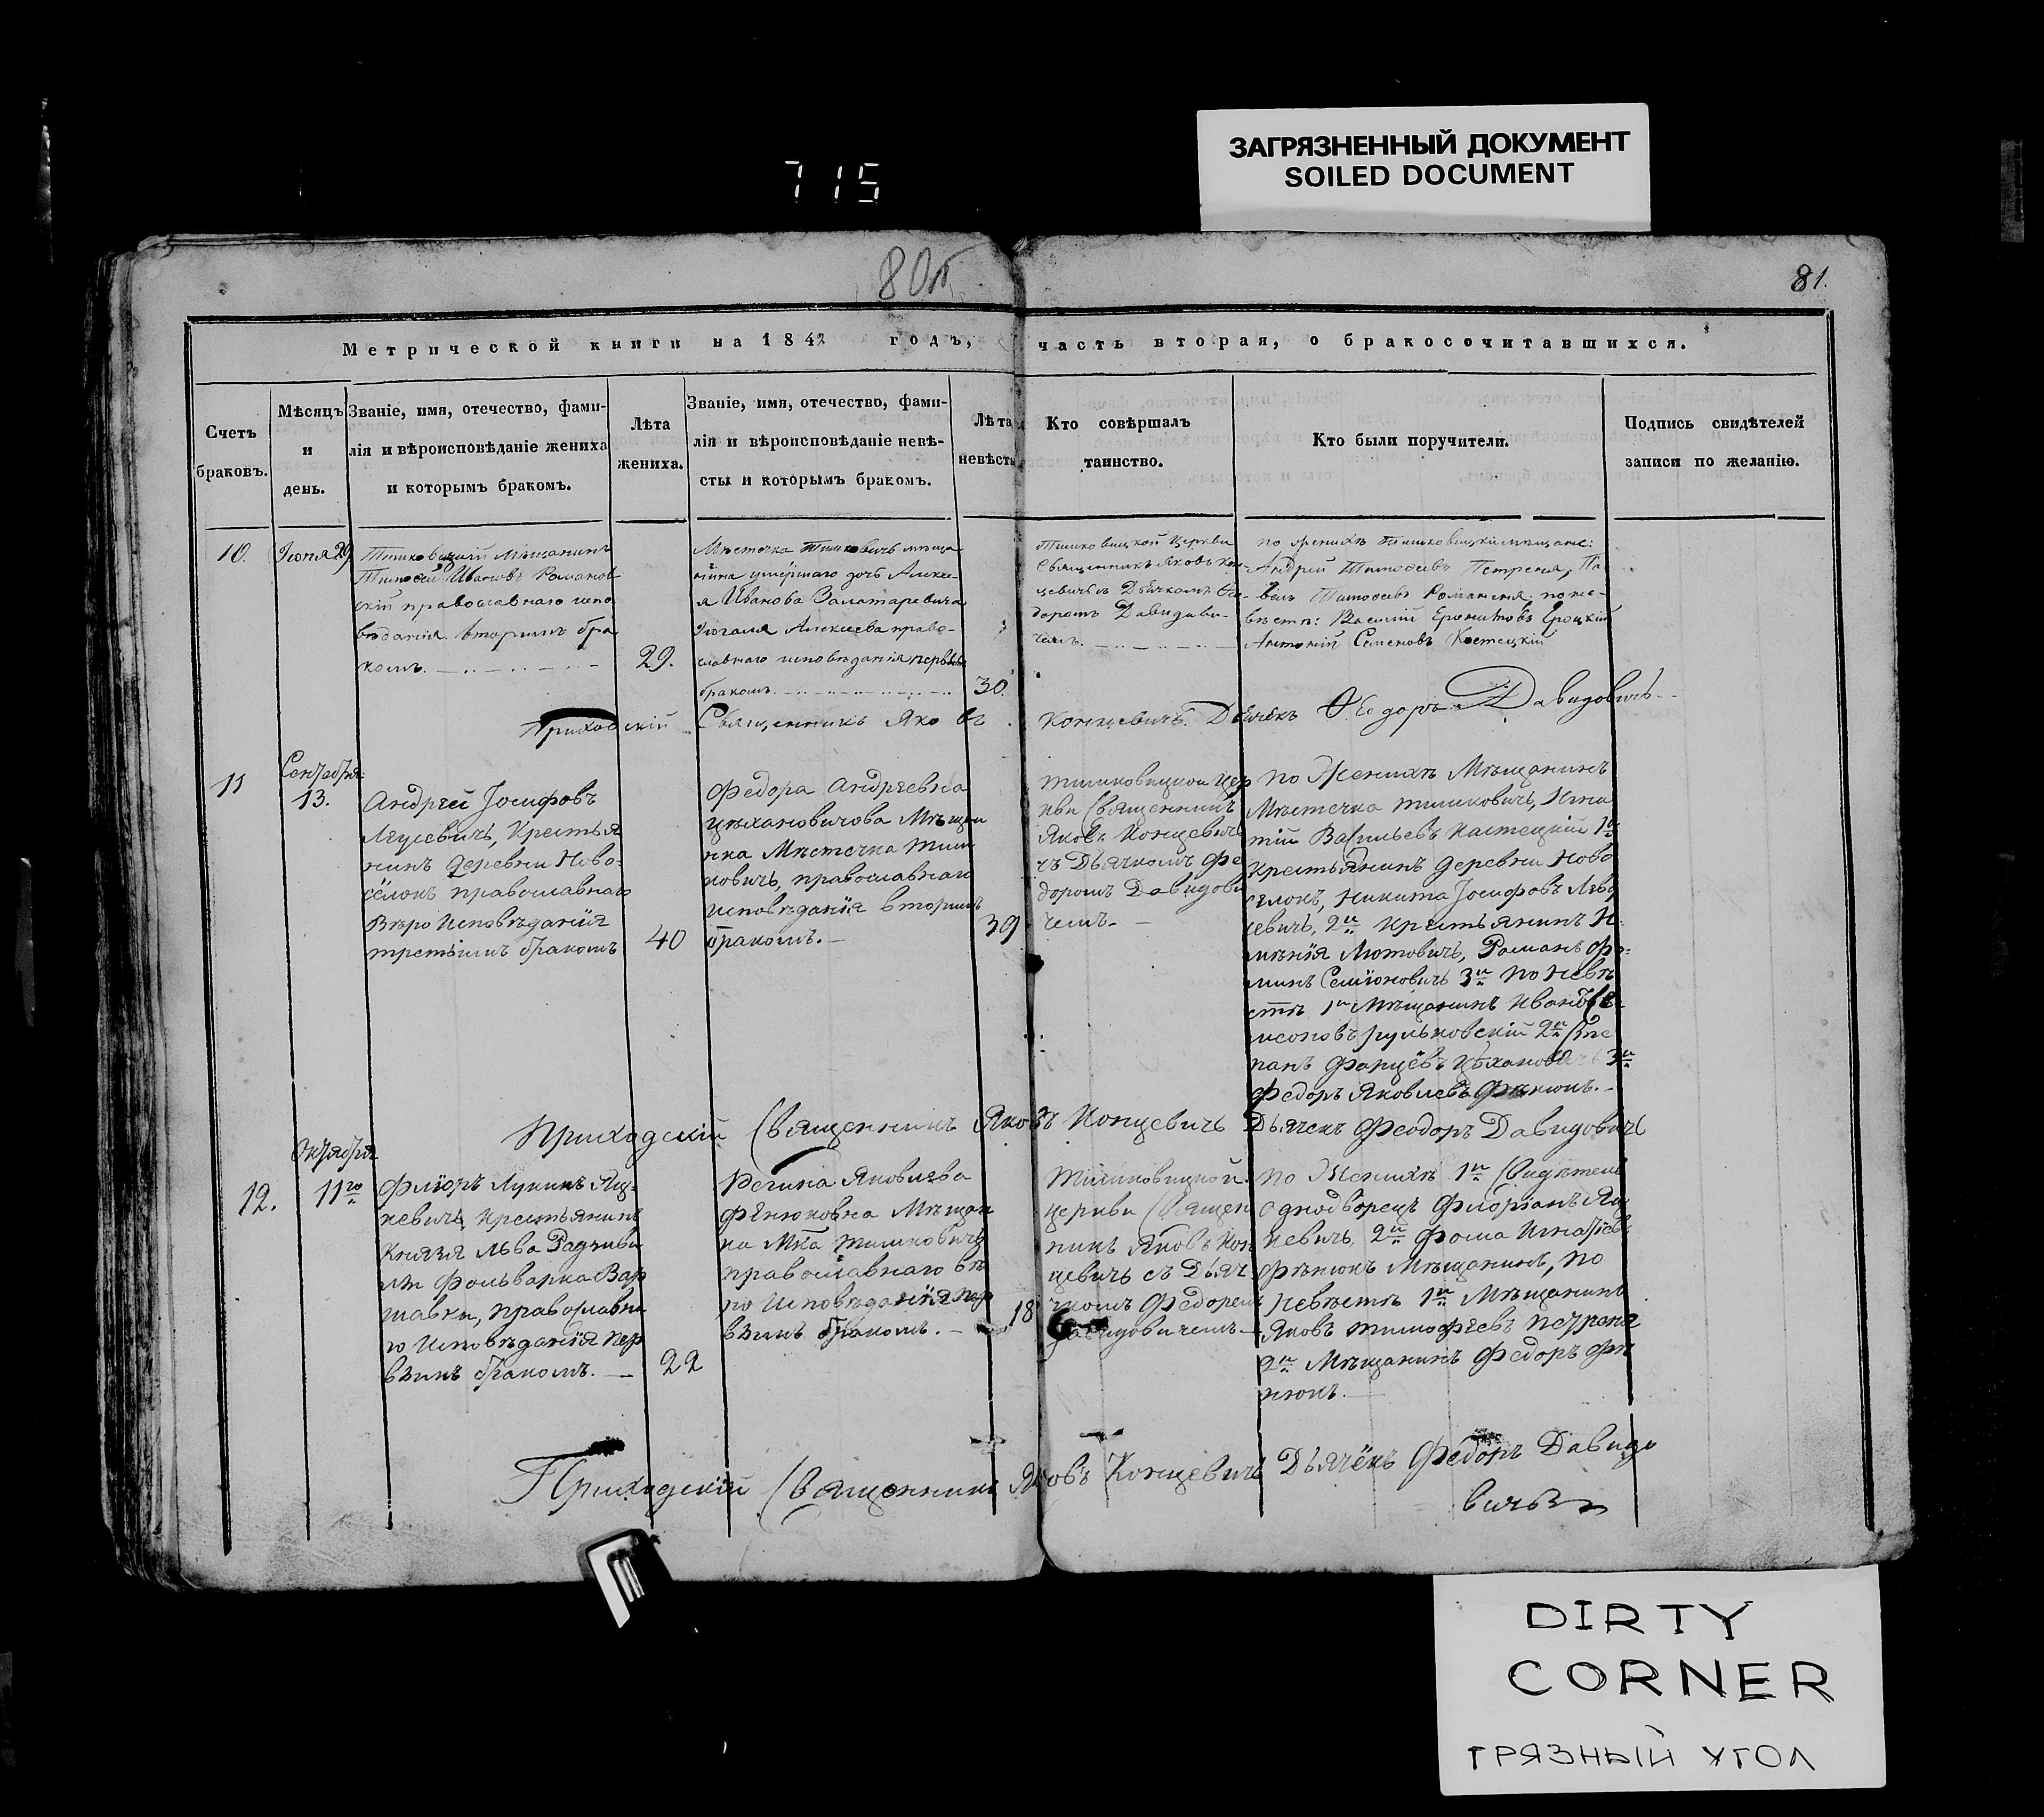 ЗАГРЯЗНЕННЫЙ ДОКУМЕНТ
SOILED DOCUMENT
715
80об
81.
Метрической книги на 1842 годъ, часть вторая, о бракосочитавшихся.
Счетъ
браковъ.
Мѣсяцъ
и
день.
Званіе, имя, отечество, фами-
лія и вѣроисповѣданіе жениха
и которымъ бракомъ.
Лѣта
жениха.
Званіе, имя, отечество, фами-
лія и вѣроисповѣданіе невѣ-
сты и которымъ бракомъ.
Лѣта
невѣсты
Кто совѣршалъ
таинство.
Кто были поручители.
Подпись свидѣтелей
записи по желанію.
10.
Іюня 29
Тимковицкій Мѣщанинъ
Тимофей Ивановъ Романов
скій православнаго испо
вѣданія вторымъ бра
комъ.
29.
Мѣстечка Тимковичь мѣща
нина умершаго дочь Алексе-
я Иванова Залатаревича
Алексеева право-
славнаго исповѣданія первымъ
бракомъ
30.
Тимковицкой Церкви
Священникъ Яковъ Кон-
цевичь съ Дьячкомъ Фео-
доромъ Давидови-
чемъ.
по женихѣ Тимковицкіе мѣщане:
Андрей Тимофеевъ Петреня, Па-
велъ Тимофеевъ Романеня по не-
вѣстѣ: Василій Ероцкій
Антоній Семеновъ Костецкій
Приходскій Священникъ Яковъ Концевичь. Дьячекъ Феодоръ Давидовичь
11
Сентября
13.
Андрей Іосифовъ
Крестья
нинъ деревни Ново-
сёлокъ православнаго
Вѣроисповѣданія
третьимъ бракомъ
40
Федора Андреевна
Цѣхановичова Мѣщан
нка Мѣстечка Тим
ковичь, православнаго
исповѣданія вторымъ
бракомъ.
39
Тимковицкой Цер
кви Священникъ
Яковъ Концевичь
съ Дьячкомъ Фе
доромъ Давидови
чемъ.
по Женихѣ Мѣщанинъ
Мѣстечка Тимковичь, Игна
тій Васильевъ Кастецкій 1й
крестьянинъ деревни Ново
селокъ, Никита Іосифовъ
цевичь, 2й крестьянинъ И-
мѣнія Лютовичь, Романъ Фо-
минъ Семіоновичь 3й по Невѣ
стѣ 1й Мѣщанинъ Иванъ Се
меоновъ Рульковскій 2й Сте
панъ Цѣханович 3й
Федоръ Яковлевъ Фѣнюкъ.
Приходскій Священникъ Яковъ Концевичь Дьячекъ Феодоръ Давидовичь
Октября
12.
11го
Фліоръ Лукинъ Яц-
кевичь, Крестьянинъ
Князя Льва Радзиви
ла Фольварка Вар
шавки, православна
го Исповѣданія пер
вымъ бракомъ.
22
Регина Яковлева
Фенюковна Мѣщан
ка Мка Тимковичь
православнаго вѣ
ро Исповѣданія пер
вымъ бракомъ.
18
Тимковицкой
церкви Священ
никъ Яковъ Кон
цевичь съ Дьяч
комъ Федоромъ
Давидовичемъ
по Женихѣ 1й Свидѣтель
однодворецъ Флоріанъ Яц
кевичь, 2й Фома Игнатіевъ
Фѣнюкъ Мѣщанинъ, по
невѣстѣ 1й Мѣщанинъ
Яковъ Тимофѣевъ Петреня
2й Мѣщанинъ Федоръ Фѣ
нюкъ.
Приходскій Священникъ Яковъ Концевичь Дьячёкъ Федоръ Давидо
вичь
DIRTY
CORNER
ГРЯЗНЫЙ УГОЛ